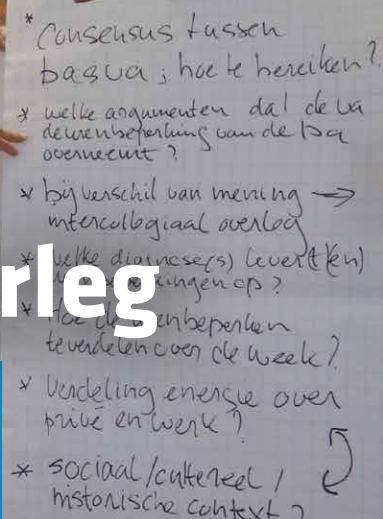 * Consensus tussen
ba & va ; hoe te bereiken?
* welke argumenten dat de va
de urenbeperking van de ba
overneemt?
* bij verschil van mening →
intercollegiaal overleg
* welke diagnose(s) levert(en)
kingen op?
rleg
* Hoe de urenbeperken
te verdelen over de week?
* Verdeling energie over
privé en werk?
* sociaal/cultureel/
historische context?